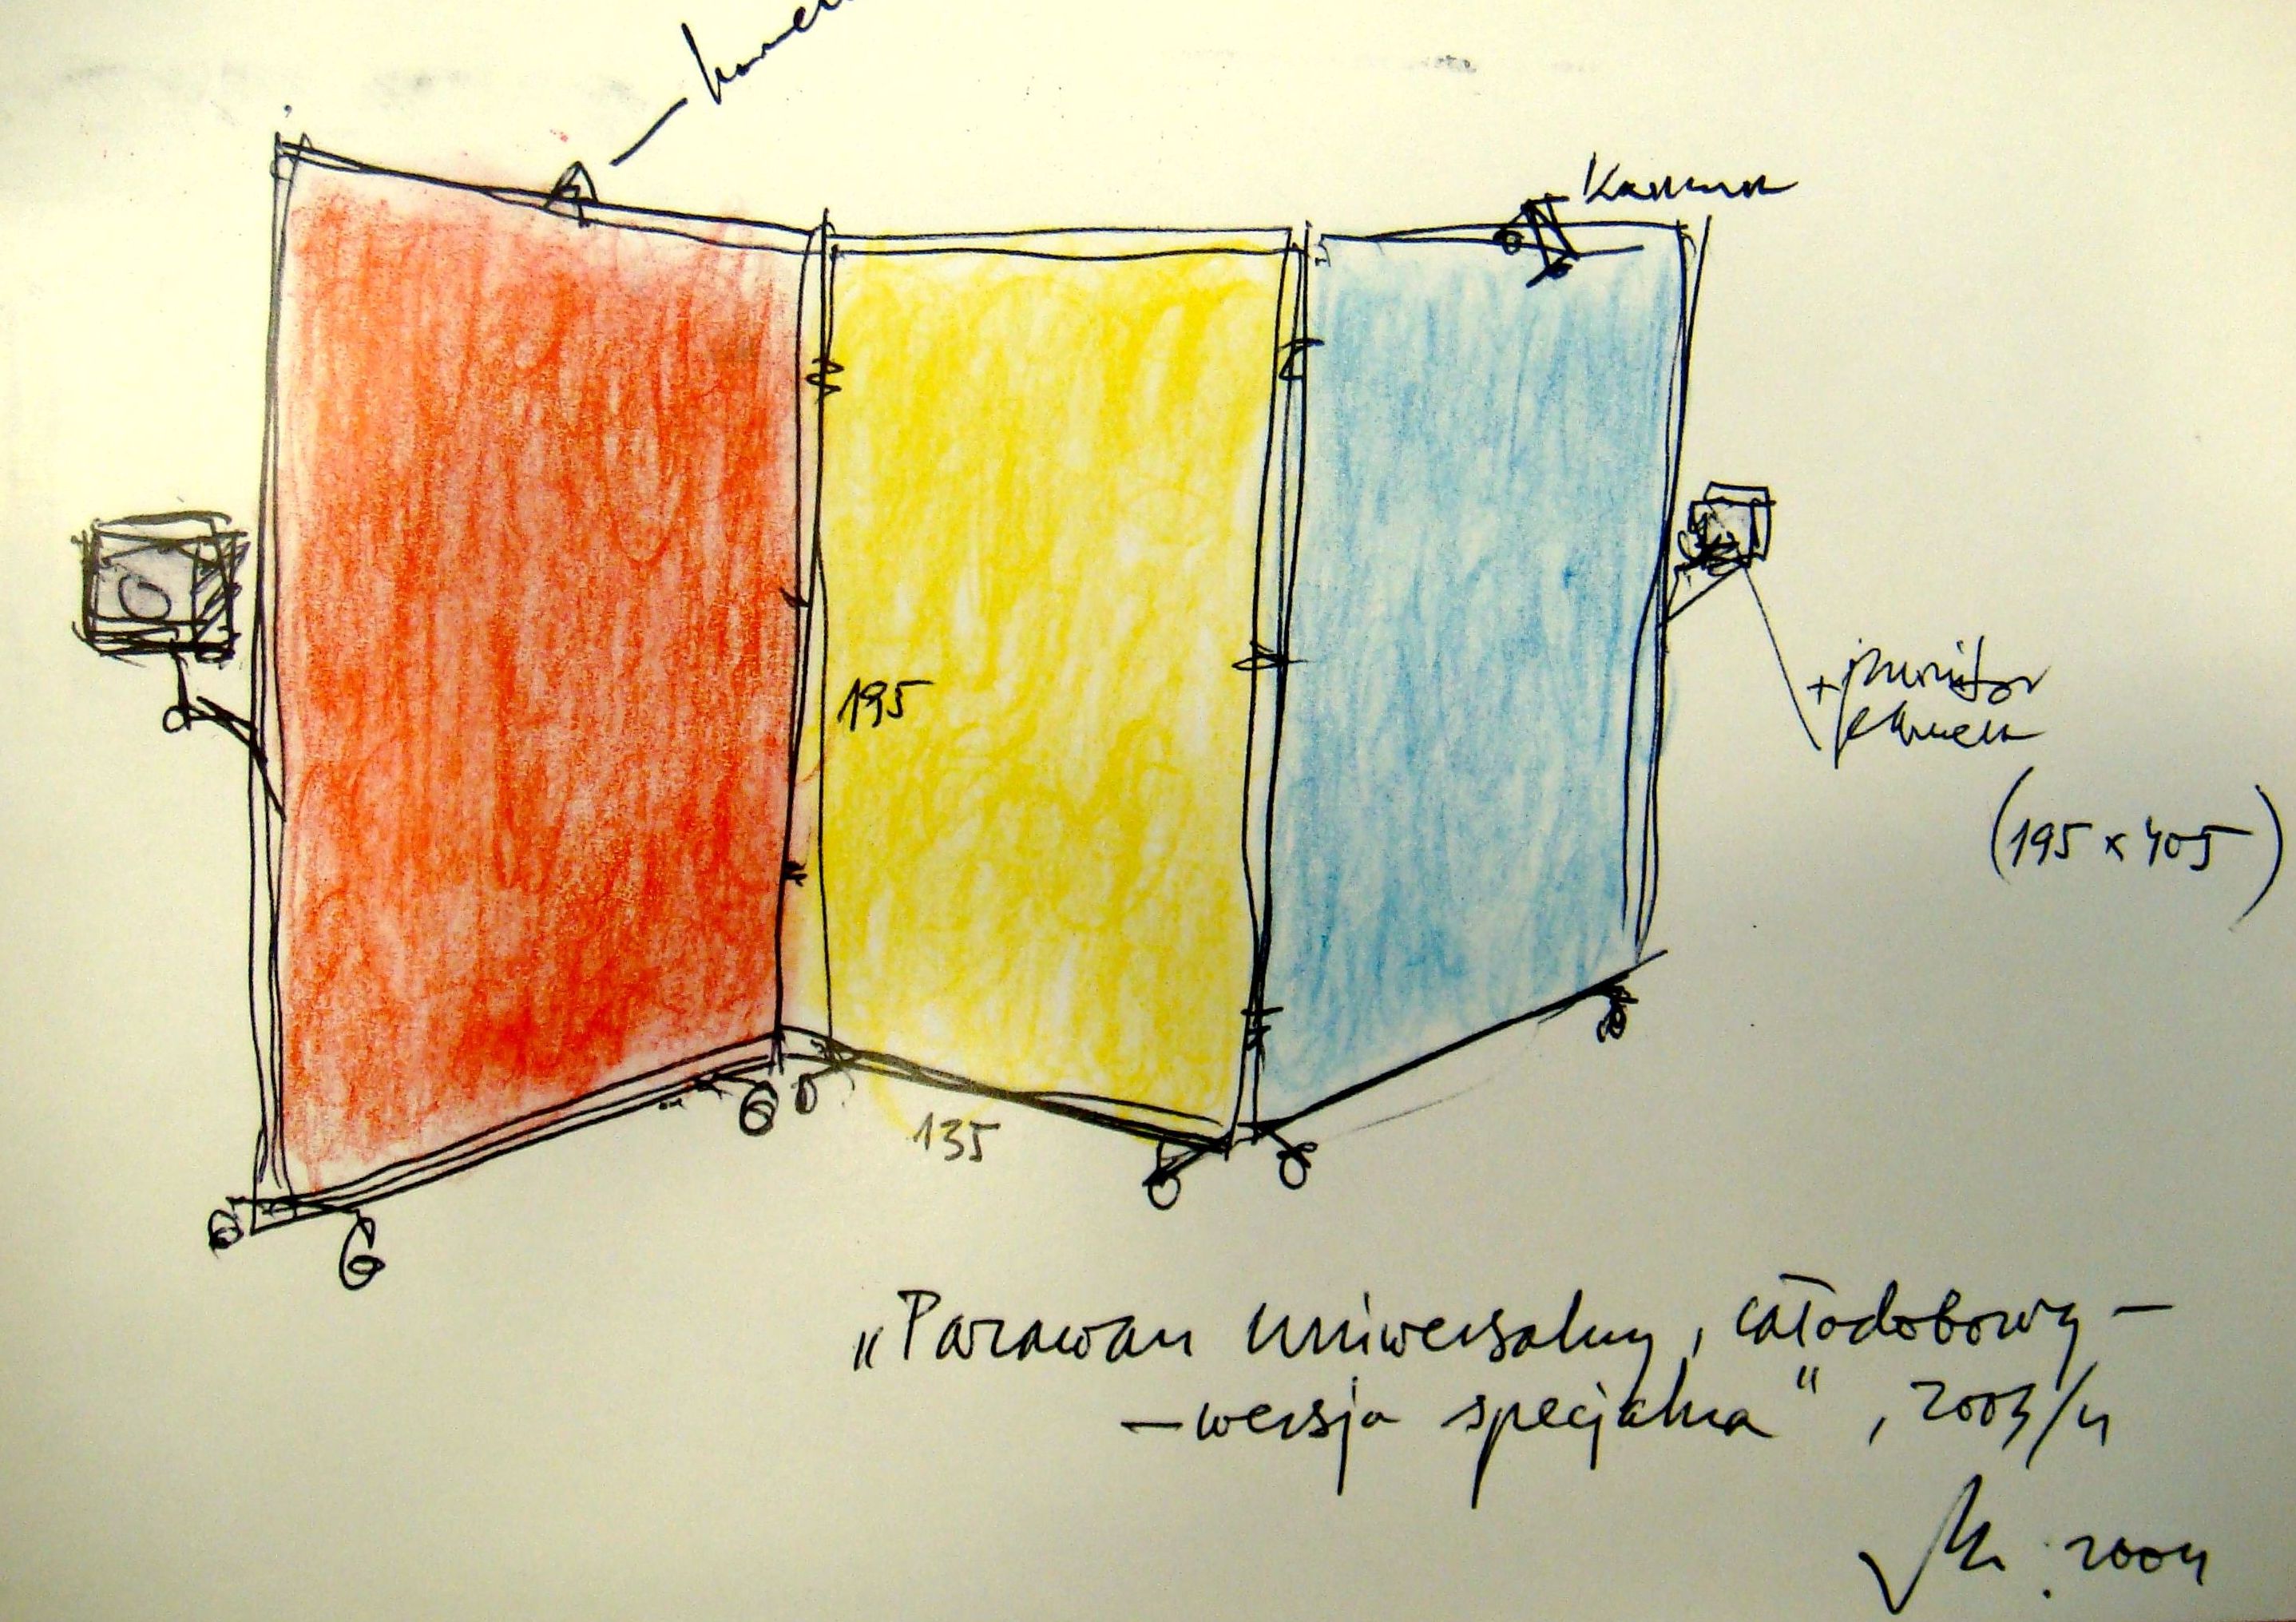 Kamera
195
+ monitor
(195 x 405)
135
„Parawan uniwersalny, całodobowy –
– wersja specjalna", 2003/4
2004